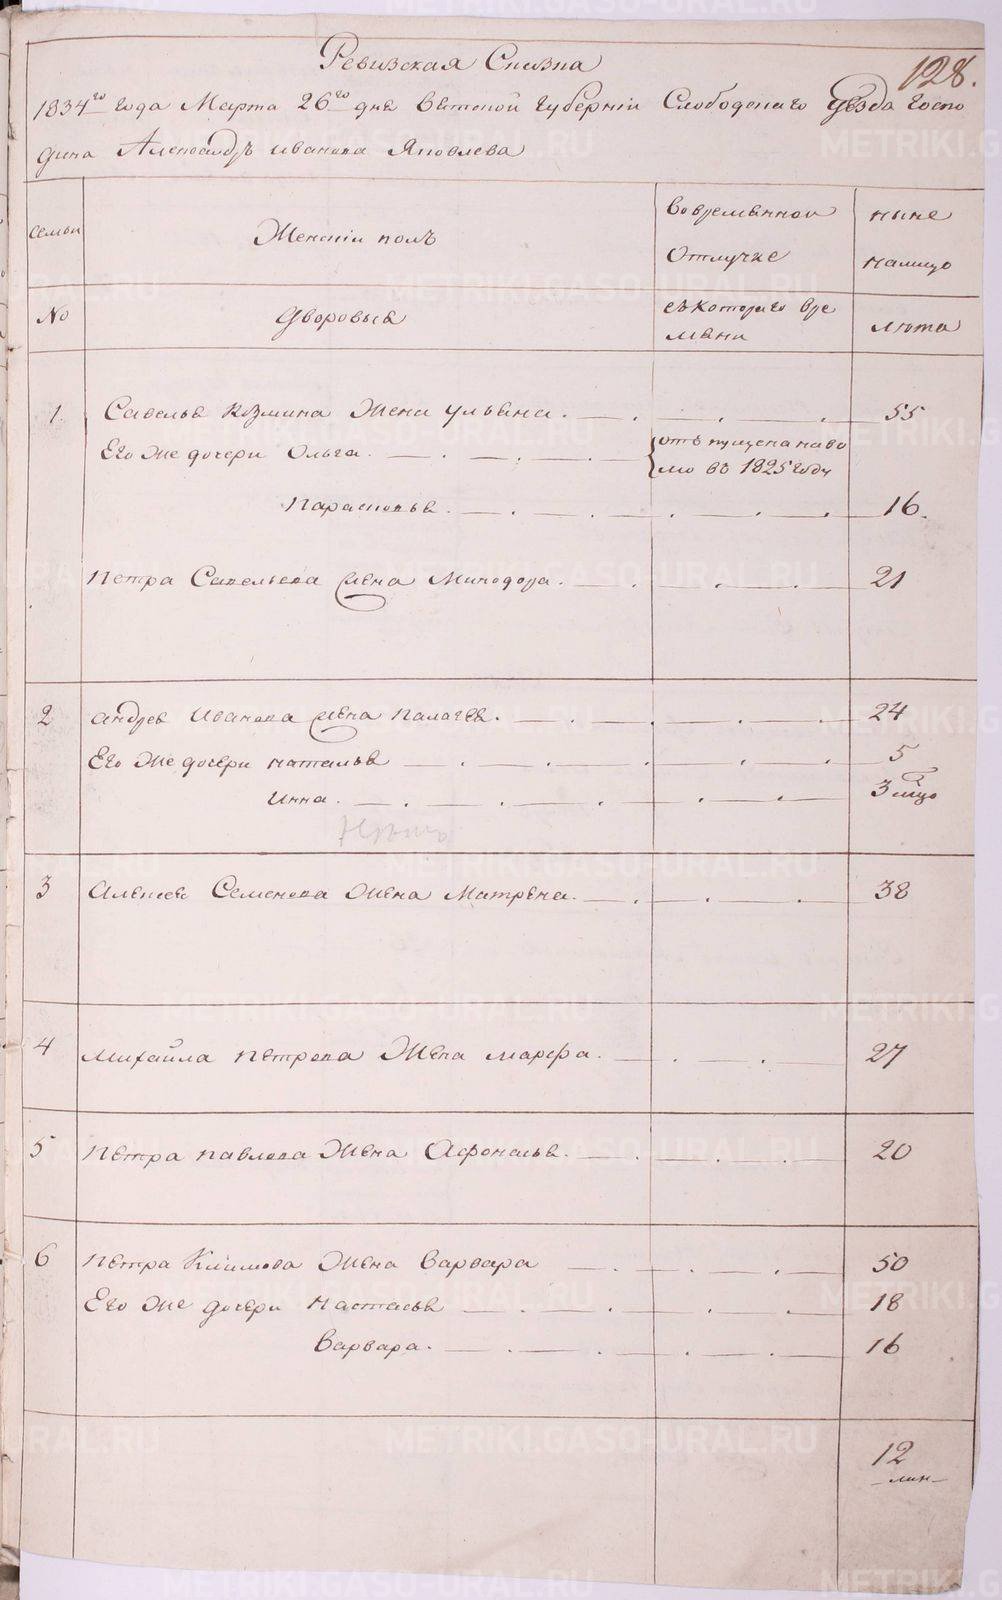 Ревизская Сказка
128.
1834го года Марта 26го дня Вятской Губернiи Слободскаго уезда госпо
дина Александръ Иванова Яковлева
семьи
Женскiи полъ
Вовременной
отлучке
ныне
налицо
No
Дворовыя
съ котораго вре
мяни
лета
1. Савелья Козмина Жена Ульяна. 55
Его же дочери Ольга. отъ пущена на во
лю въ 1825 году
Парасковья 16.
Петра Савельева Жена Минодора. 21
2 Андрея Иванова Жена Палагея. 24
Его же дочери Наталья 5
Инна. 3
3 Алексея Семенова Жена Матрена. 38
4 Михайла Петрова Жена Марфа. 27
5 Петра Павлова Жена Афонасья. 20
6 Петра Климова Жена Варвара 50
Его же дочери Настасья 18
Варвара. 16
12
METRIKI.GASO-URAL.RU